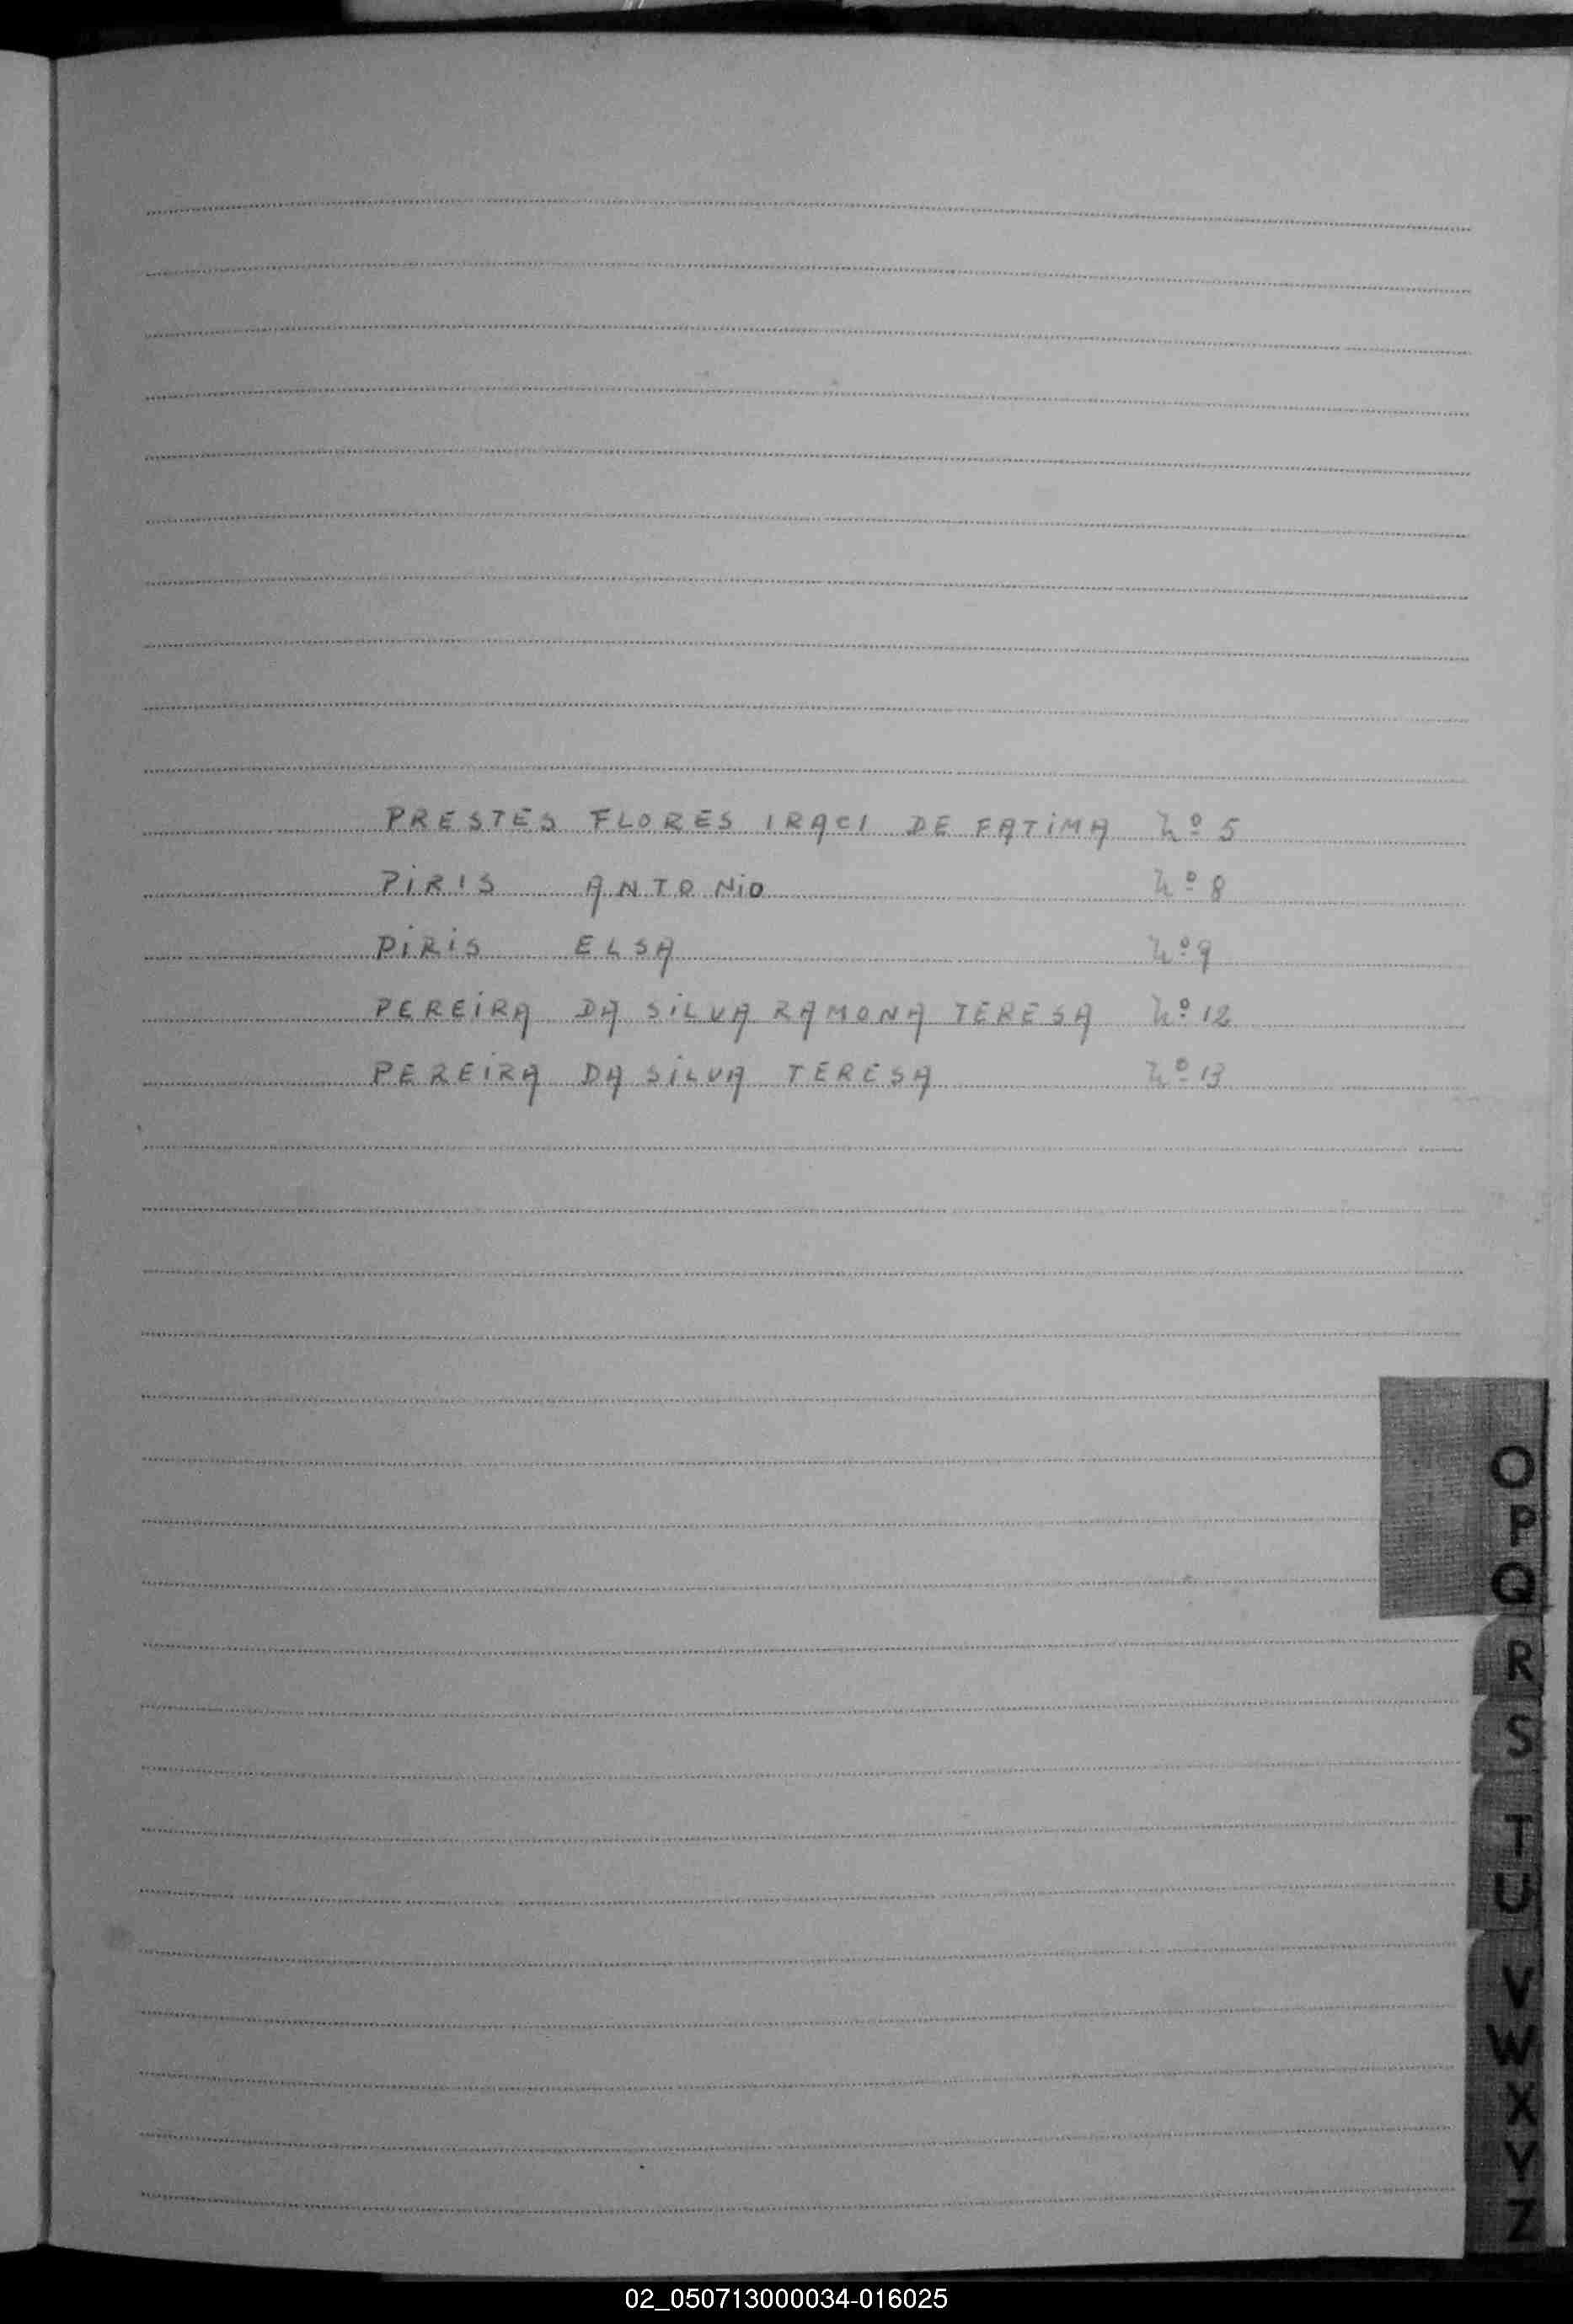 PRESTES FLORES IRACI DE FATIMA nº 5
PIRIS ANTONIO nº 8
PIRIS ELSA nº 9
PEREIRA DA SILVA RAMONA TERESA nº 12
PEREIRA DA SILVA TERESA nº 13
O
P
Q
R
S
T
U
V
W
X
Y
Z
02_050713000034-016025